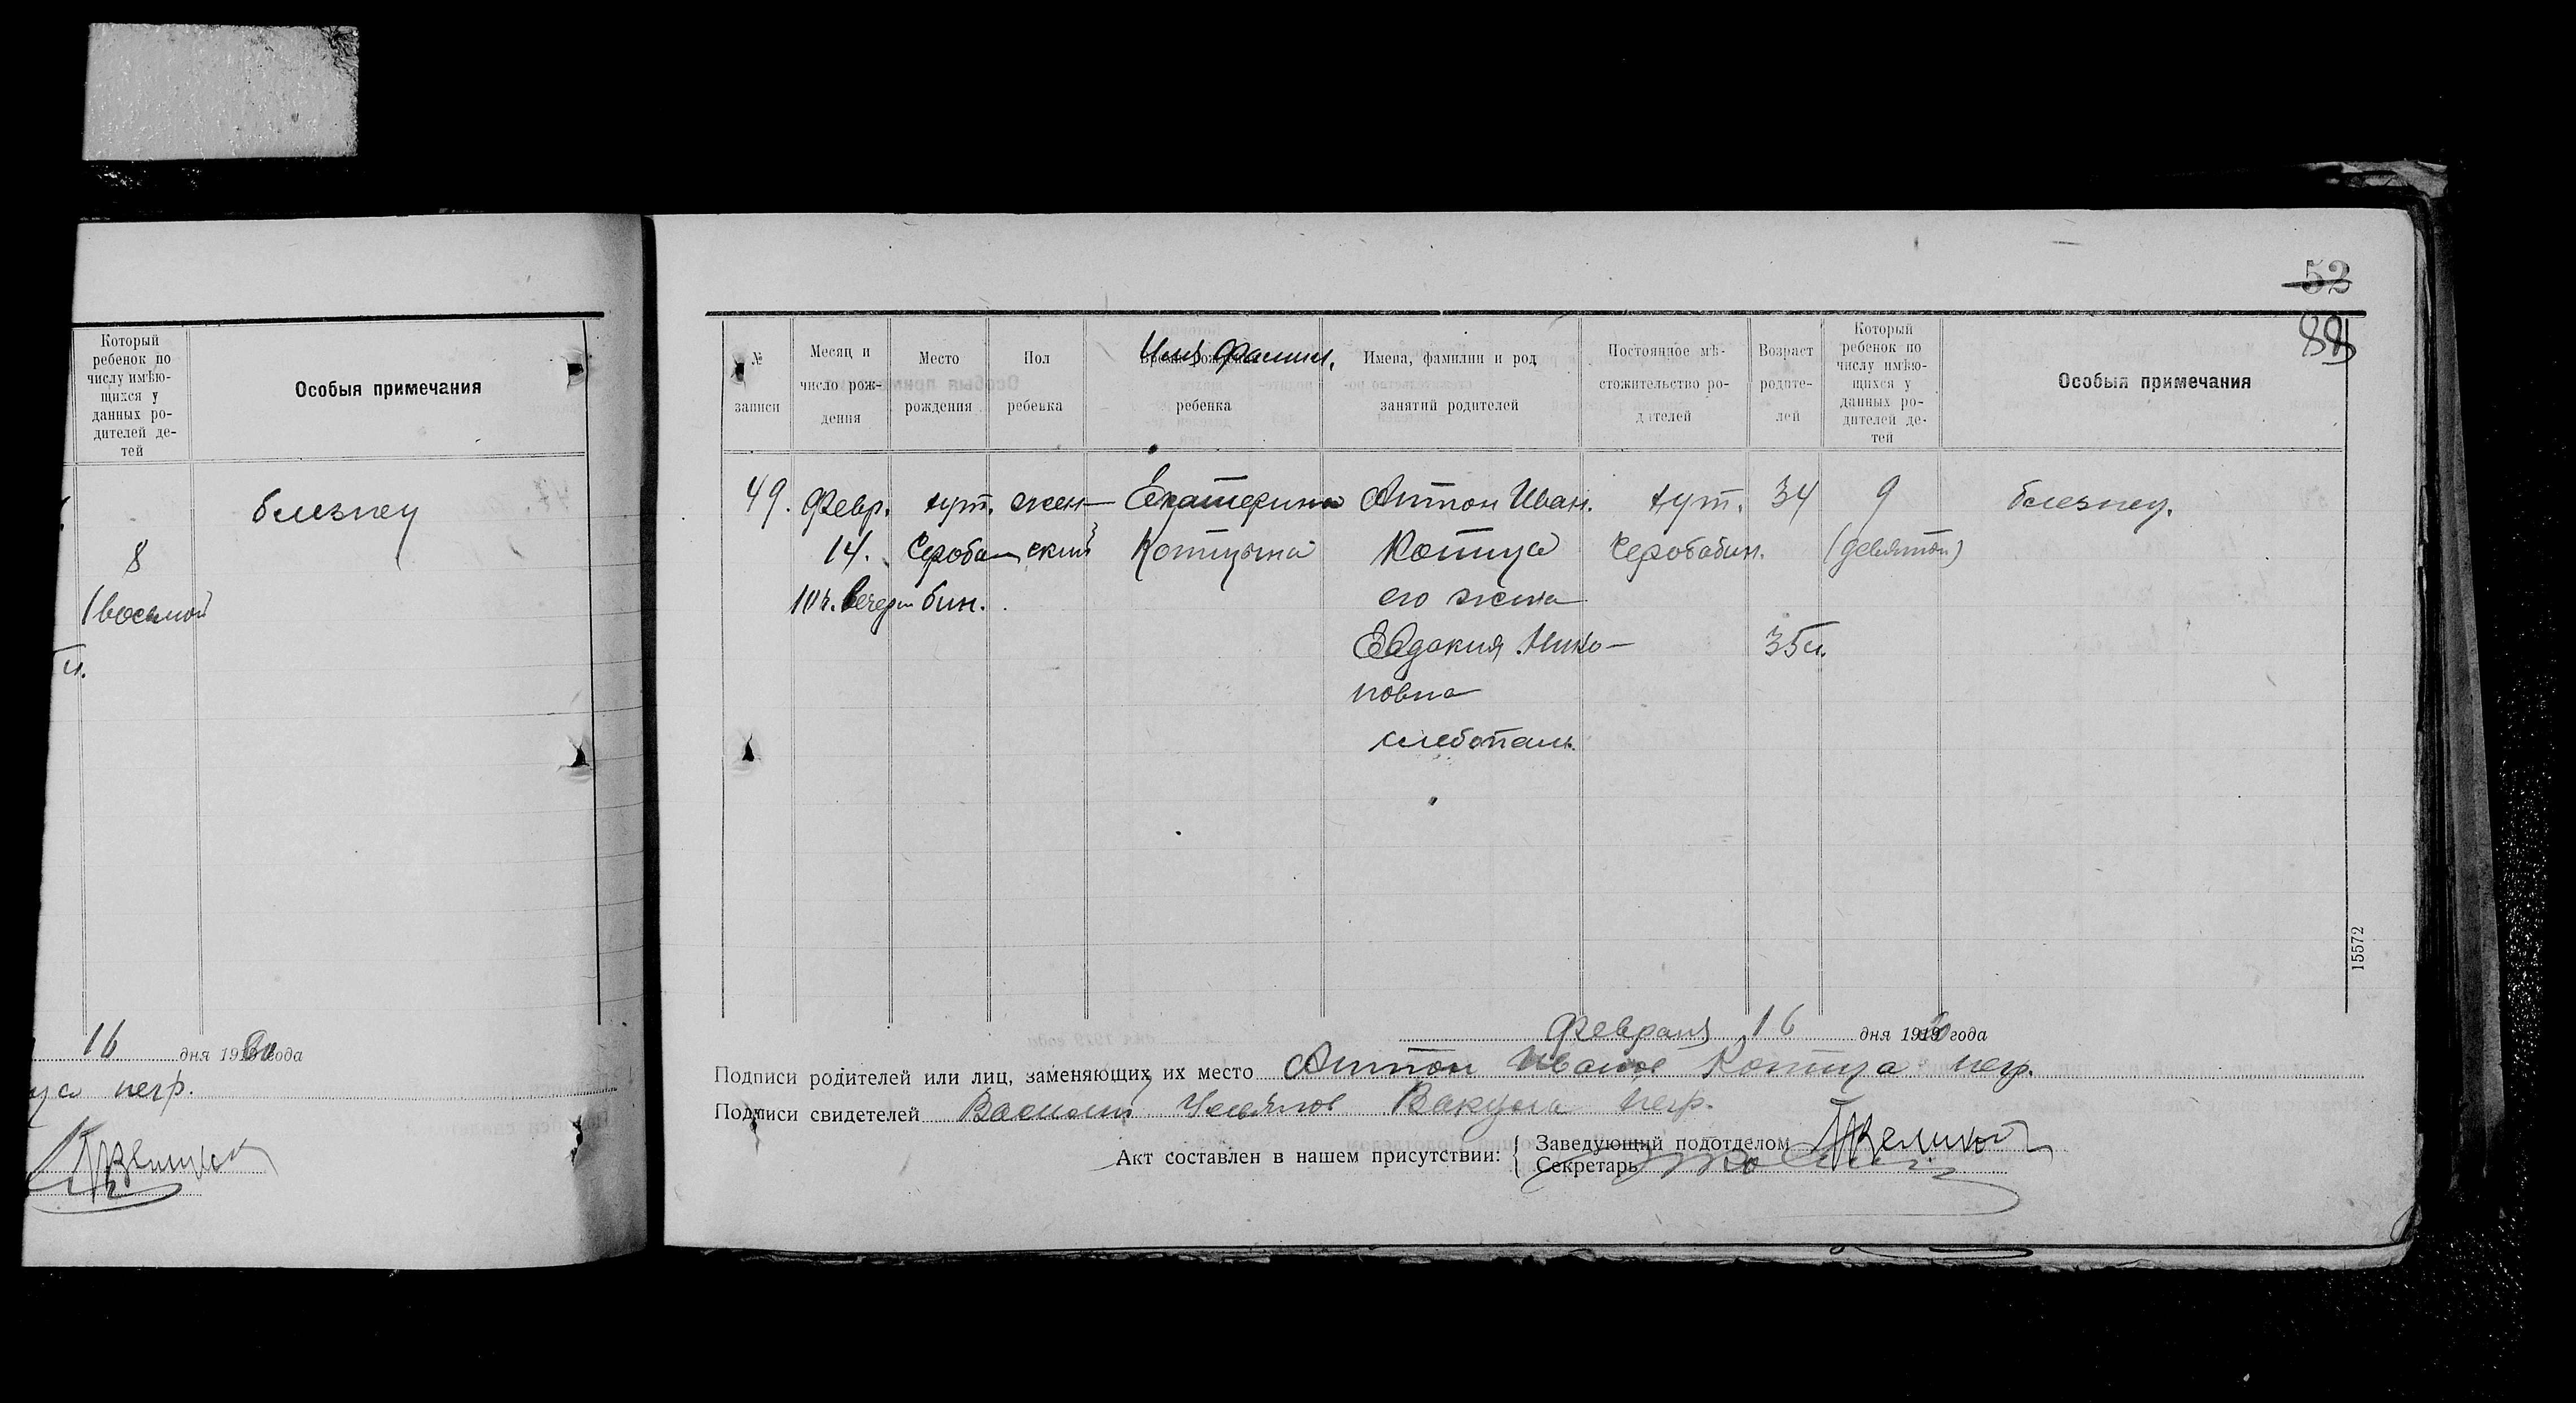 Который
ребенок по
числу имѣю-
щихся у
данных ро-
дителей де-
тей
Особыя примечания
близнец
8
(восьмой
16 дня 1920 года
негр.
52
88
№
записи
Месяц и
число рож-
дения
Место
рождения
Пол
ребенка
Имя, фамил.
ребенка
Имена, фамилии и род
занятий родителей
Постоянное мѣ-
стожительство ро-
дителей
Возраст
родите-
лей
Который
ребенок по
числу имѣю-
щихся у
данных ро-
дителей де-
тей
Особыя примечания
49. Февр. хут. жен- Екатерина Антон Иван. хут. 34 9 близнец.
14. Сероба- ский Котцына Котца Серобабин. (девятой)
10 ч. вечера бин. его жена
Евдокия Нико- 35 л.
новна
хлебопаш.
15572
Февраля 16 дня 1920 года
Подписи родителей или лиц, заменяющих их место Антон Иванов Котца негр.
Подписи свидетелей Василий Вакула негр.
Акт составлен в нашем присутствии: { Заведующий подотделом
Секретарь